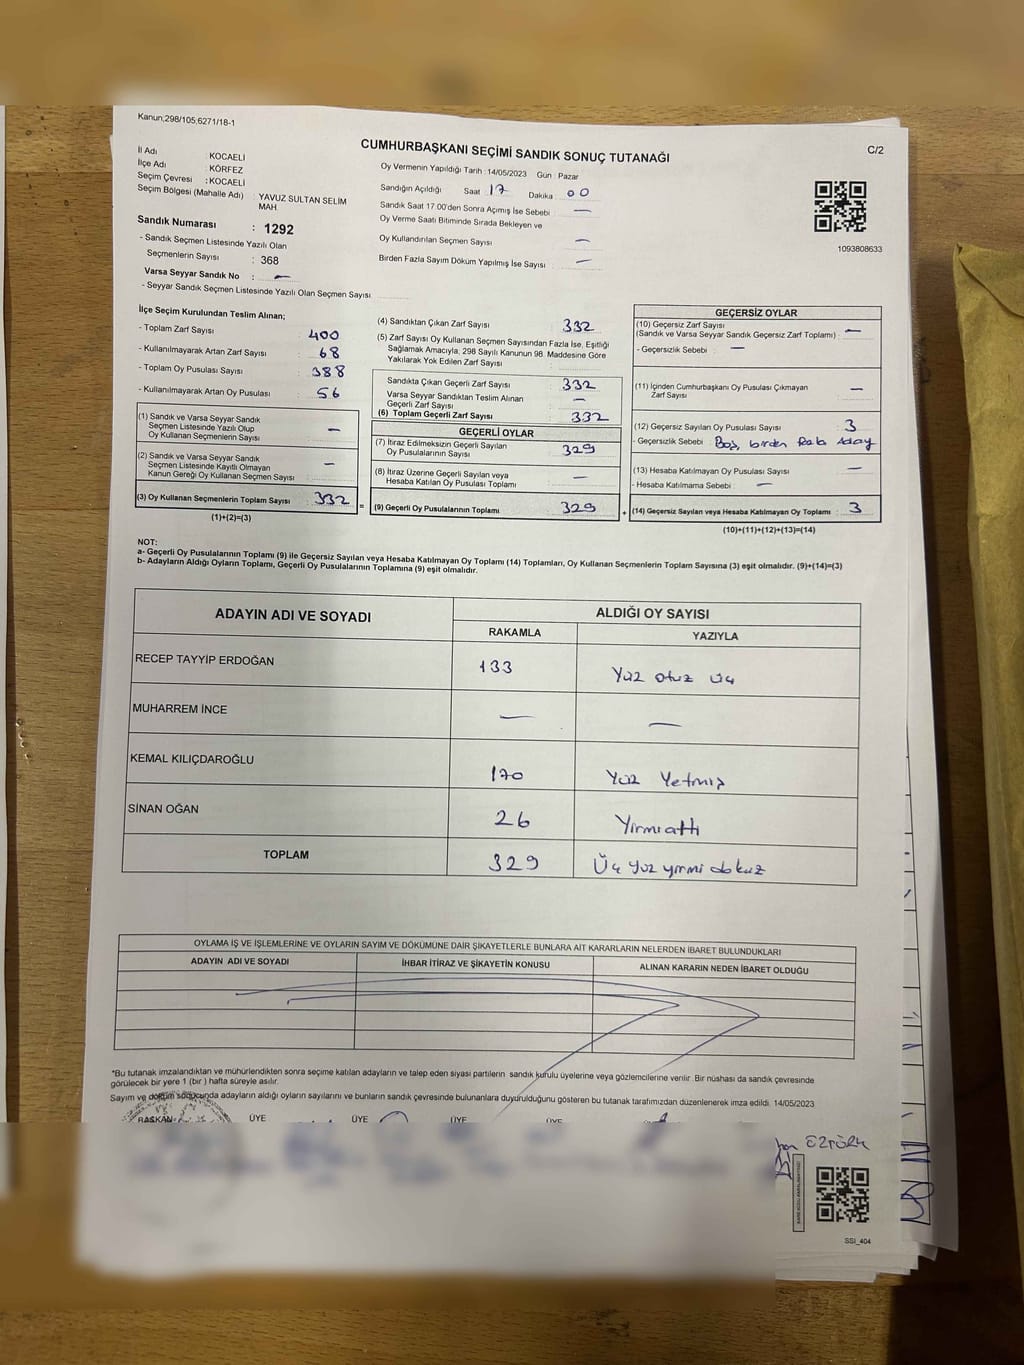 Kanun,298/105,6271/18-1
CUMHURBAŞKANI SEÇİMİ SANDIK SONUÇ TUTANAĞI
C/2
İl Adı : KOCAELİ
İlçe Adı : KÖRFEZ
Seçim Çevresi : KOCAELİ
Seçim Bölgesi (Mahalle Adı) : YAVUZ SULTAN SELİM MAH.
Sandık Numarası : 1292
- Sandık Seçmen Listesinde Yazılı Olan
Seçmenlerin Sayısı : 368
Varsa Seyyar Sandık No : —
- Seyyar Sandık Seçmen Listesinde Yazılı Olan Seçmen Sayısı
Oy Vermenin Yapıldığı Tarih : 14/05/2023 Gün : Pazar
Sandığın Açıldığı Saat : 17 Dakika : 00
Sandık Saat 17.00'den Sonra Açımış İse Sebebi : —
Oy Verme Saati Bitiminde Sırada Bekleyen ve
Oy Kullandırılan Seçmen Sayısı : —
Birden Fazla Sayım Döküm Yapılmış İse Sayısı : —
1093808633
İlçe Seçim Kurulundan Teslim Alınan;
- Toplam Zarf Sayısı : 400
- Kullanılmayarak Artan Zarf Sayısı : 68
- Toplam Oy Pusulası Sayısı : 388
- Kullanılmayarak Artan Oy Pusulası : 56
(1) Sandık ve Varsa Seyyar Sandık
Seçmen Listesinde Yazılı Olup
Oy Kullanan Seçmenlerin Sayısı : —
(2) Sandık ve Varsa Seyyar Sandık
Seçmen Listesinde Kayıtlı Olmayan
Kanun Gereği Oy Kullanan Seçmen Sayısı : —
(3) Oy Kullanan Seçmenlerin Toplam Sayısı : 332
(1)+(2)=(3)
(4) Sandıktan Çıkan Zarf Sayısı : 332
(5) Zarf Sayısı Oy Kullanan Seçmen Sayısından Fazla İse, Eşitliği
Sağlamak Amacıyla, 298 Sayılı Kanunun 98. Maddesine Göre
Yakılarak Yok Edilen Zarf Sayısı :
Sandıkta Çıkan Geçerli Zarf Sayısı : 332
Varsa Seyyar Sandıktan Teslim Alınan
Geçerli Zarf Sayısı : —
(6) Toplam Geçerli Zarf Sayısı : 332
GEÇERLİ OYLAR
(7) İtiraz Edilmeksizin Geçerli Sayılan
Oy Pusulalarının Sayısı : 329
(8) İtiraz Üzerine Geçerli Sayılan veya
Hesaba Katılan Oy Pusulası Toplamı : —
= (9) Geçerli Oy Pusulalarının Toplamı : 329
GEÇERSİZ OYLAR
(10) Geçersiz Zarf Sayısı
(Sandık ve Varsa Seyyar Sandık Geçersiz Zarf Toplamı) : —
- Geçersizlik Sebebi : —
(11) İçinden Cumhurbaşkanı Oy Pusulası Çıkmayan
Zarf Sayısı : —
(12) Geçersiz Sayılan Oy Pusulası Sayısı : 3
- Geçersizlik Sebebi : Boş, birden aday
(13) Hesaba Katılmayan Oy Pusulası Sayısı : —
- Hesaba Katılmama Sebebi : —
+ (14) Geçersiz Sayılan veya Hesaba Katılmayan Oy Toplamı : 3
(10)+(11)+(12)+(13)=(14)
NOT:
a- Geçerli Oy Pusulalarının Toplamı (9) ile Geçersiz Sayılan veya Hesaba Katılmayan Oy Toplamı (14) Toplamları, Oy Kullanan Seçmenlerin Toplam Sayısına (3) eşit olmalıdır. (9)+(14)=(3)
b- Adayların Aldığı Oyların Toplamı, Geçerli Oy Pusulalarının Toplamına (9) eşit olmalıdır.
ADAYIN ADI VE SOYADI ALDIĞI OY SAYISI
RAKAMLA YAZIYLA
RECEP TAYYİP ERDOĞAN 133 Yüz otuz üç
MUHARREM İNCE — —
KEMAL KILIÇDAROĞLU 170 Yüz Yetmiş
SİNAN OĞAN 26 Yirmialtı
TOPLAM 329 Üç yüz yirmi dokuz
OYLAMA İŞ VE İŞLEMLERİNE VE OYLARIN SAYIM VE DÖKÜMÜNE DAİR ŞİKAYETLERLE BUNLARA AİT KARARLARIN NELERDEN İBARET BULUNDUKLARI
ADAYIN ADI VE SOYADI İHBAR İTİRAZ VE ŞİKAYETİN KONUSU ALINAN KARARIN NEDEN İBARET OLDUĞU
*Bu tutanak imzalandıktan ve mühürlendikten sonra seçime katılan adayların ve talep eden siyasi partilerin sandık kurulu üyelerine veya gözlemcilerine verilir. Bir nüshası da sandık çevresinde
görülecek bir yere 1 (bir ) hafta süreyle asılır.
Sayım ve döküm sonucunda adayların aldığı oyların sayılarını ve bunların sandık çevresinde bulunanlara duyurulduğunu gösteren bu tutanak tarafımızdan düzenlenerek imza edildi. 14/05/2023
BAŞKAN ÜYE ÜYE ÜYE ÜYE
ÖZTÜRK
SSI_404